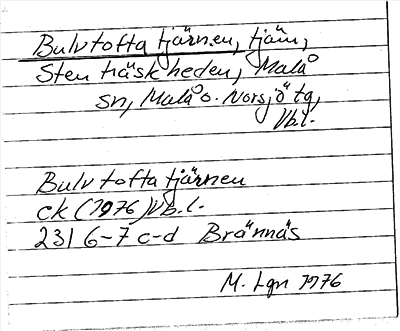 Bulvtoftatjärnen, tjärn,
Stenträskheden, Malå
sn, Malå o. Norsjö tg,
Vb.l.
Bulvtoftatjärnen
ck (1976) Vb.l.
231 6-7 c-d Brännäs
M. Lgn 1976